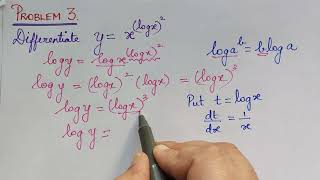 PROBLEM 3.
Differentiate y = x^(logx)^2
log y = log x^(logx)^2
log a^b = b log a
log y = (logx)^2 (logx) = (logx)^3
log y = (logx)^3
Put t = logx
log y =
dt/dx = 1/x